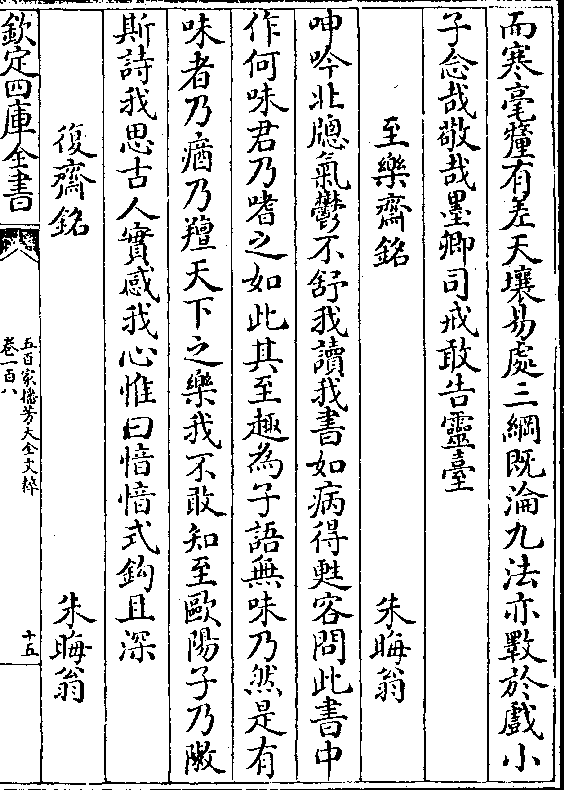 而寒毫釐有差天壤易處三綱既淪九法亦斁於戲小
子念哉敬哉墨卿司戒敢告靈臺
至樂齋銘　朱晦翁
呻吟北牕氣鬱不舒我讀我書如病得甦客問此書中
作何味君乃嗜之如此其至趣為子語無味乃然是有
味者乃㾞乃羶天下之樂我不敢知至歐陽子乃敶
斯詩我思古人實感我心惟曰愔愔式鈎且深
復齋銘　朱晦翁
欽定四庫全書
五百家播芳大全文粹
卷一百八
十五